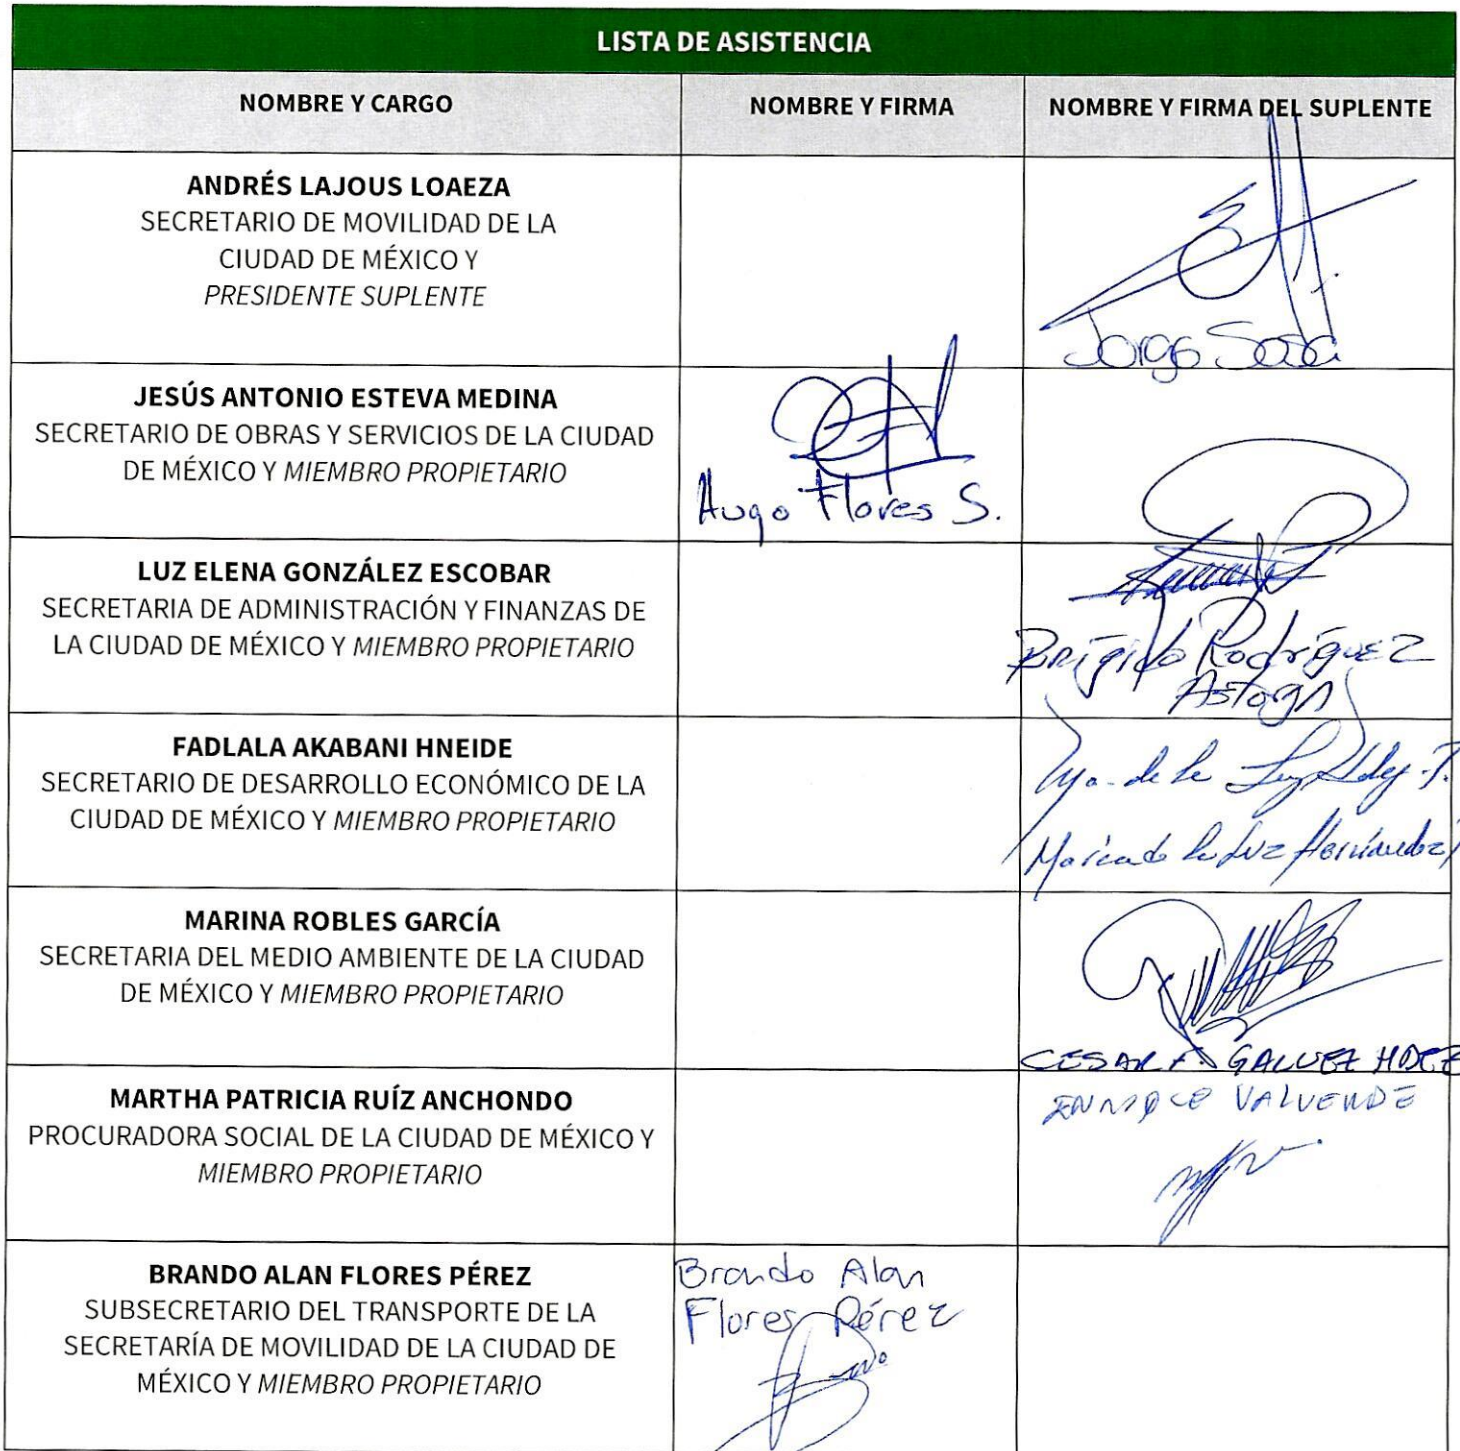 LISTA DE ASISTENCIA
NOMBRE Y CARGO
NOMBRE Y FIRMA
NOMBRE Y FIRMA DEL SUPLENTE
ANDRÉS LAJOUS LOAEZA
SECRETARIO DE MOVILIDAD DE LA
CIUDAD DE MÉXICO Y
PRESIDENTE SUPLENTE
Jorge Sosa
JESÚS ANTONIO ESTEVA MEDINA
SECRETARIO DE OBRAS Y SERVICIOS DE LA CIUDAD
DE MÉXICO Y MIEMBRO PROPIETARIO
Hugo Flores S.
LUZ ELENA GONZÁLEZ ESCOBAR
SECRETARIA DE ADMINISTRACIÓN Y FINANZAS DE
LA CIUDAD DE MÉXICO Y MIEMBRO PROPIETARIO
Brígido Rodríguez
Astorga
FADLALA AKABANI HNEIDE
SECRETARIO DE DESARROLLO ECONÓMICO DE LA
CIUDAD DE MÉXICO Y MIEMBRO PROPIETARIO
Ma. de la Luz
María de la Luz Hernández
MARINA ROBLES GARCÍA
SECRETARIA DEL MEDIO AMBIENTE DE LA CIUDAD
DE MÉXICO Y MIEMBRO PROPIETARIO
CESAR F. GALVEZ HDEZ
MARTHA PATRICIA RUÍZ ANCHONDO
PROCURADORA SOCIAL DE LA CIUDAD DE MÉXICO Y
MIEMBRO PROPIETARIO
ENRIQUE VALVERDE
BRANDO ALAN FLORES PÉREZ
SUBSECRETARIO DEL TRANSPORTE DE LA
SECRETARÍA DE MOVILIDAD DE LA CIUDAD DE
MÉXICO Y MIEMBRO PROPIETARIO
Brando Alan
Flores Pérez